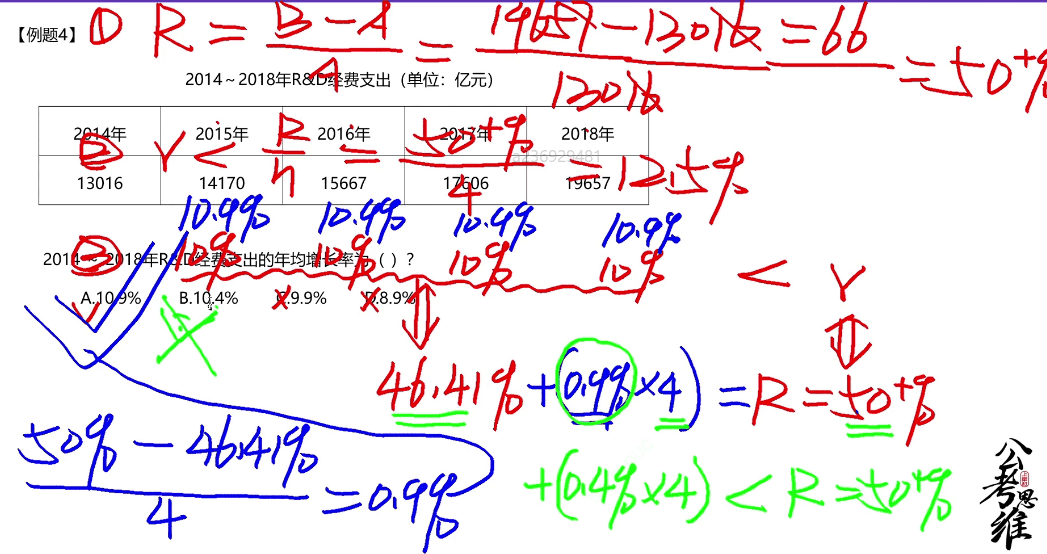 【例题4】 ① R = B-A/A = 19657-13016/13016 = 66 = 50⁺%
2014～2018年R&D经费支出（单位：亿元）
2014年 2015年 2016年 2017年 2018年
② r < R/n = 50⁺%/4 = 12.5%
13016 14170 15667 17606 19657
10.9% 10.9% 10.9% 10.9%
③ 10% 10% 10% 10% < r
2014～2018年R&D经费支出的年均增长率为（ ）？
A.10.9% B.10.4% C.9.9% D.8.9%
46.41% + (0.9%×4) = R = 50⁺%
50% - 46.41%/4 = 0.9%
+(0.4%×4) < R = 50⁺%
公考思维